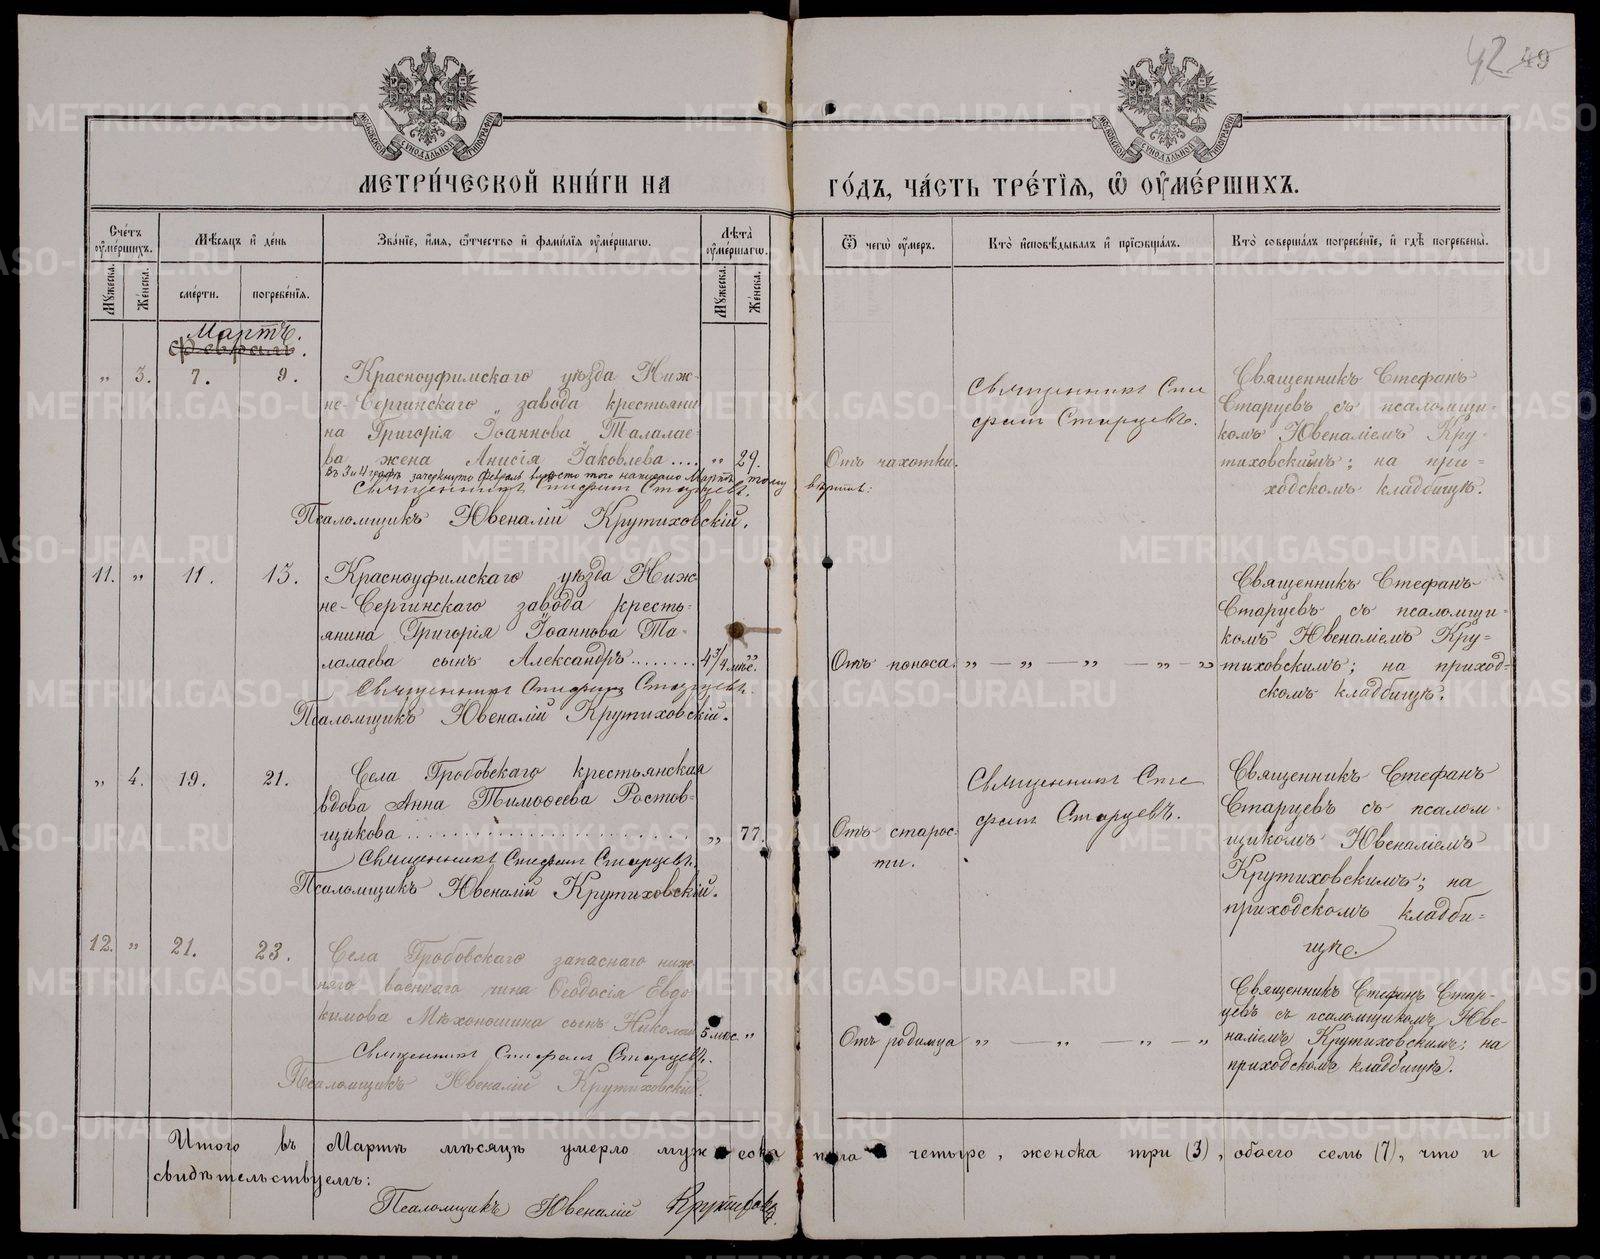 42 49
МОСКОВСКОЙ СѴНОДАЛЬНОЙ ТИПОГРАФІИ
МОСКОВСКОЙ СѴНОДАЛЬНОЙ ТИПОГРАФІИ
МЕТРИ́ЧЕСКОЙ КНИ́ГИ НА
ГО́ДЪ, ЧА́СТЬ ТРЕ́ТІѦ, Ѡ҆ ОУ҆МЕ́РШИХЪ.
Сче́тъ оу҆ме́ршихъ.
Мꙋжеска.
Же́нска.
Мѣ́сяцъ и҆ де́нь
сме́рти.
погребе́нїя.
Зва́нїе, и҆́мя, ѻ҆́тчество и҆ фами́лїя оу҆ме́ршагѡ.
Лѣ́та оу҆ме́ршагѡ.
Мꙋжеска.
Же́нска.
Ѿ чегѡ̀ оу҆́меръ.
Кто̀ и҆сповѣ́дывалъ и҆ прїѻбща́лъ.
Кто̀ соверша́лъ погребе́нїе, и҆ гдѣ̀ погребены̀.
Мартъ.
Февраль.
„ 3. 7. 9.
Красноуфимскаго уѣзда Ниж-
не-Сергинскаго завода крестьяни
на Григорія Іоаннова Талалае-
ва жена Анисія Іаковлева.... „ 29.
Въ 3 и 4 графѣ зачеркнуто Февраль вмѣсто того написано Мартъ тому вѣрить:
Священникъ Стефанъ Старцевъ.
Псаломщикъ Ювеналій Крутиховскій.
Отъ чахотки.
Священникъ Сте
фанъ Старцевъ.
Священникъ Стефанъ
Старцевъ съ псаломщи-
комъ Ювеналіемъ Кру-
тиховскимъ; на при-
ходскомъ кладбищѣ.
11. „ 11. 13.
Красноуфимскаго уѣзда Ниж
не-Сергинскаго завода кресть-
янина Григорія Іоаннова Та-
лалаева сынъ Александръ........ 4 3/4 мѣс. „
Священникъ Стефанъ Старцевъ.
Псаломщикъ Ювеналій Крутиховскій.
Отъ поноса. „ — „ — „ — „ — „
Священникъ Стефанъ
Старцевъ съ псаломщи-
комъ Ювеналіемъ Кру-
тиховскимъ; на приход-
скомъ кладбищѣ.
„ 4. 19. 21.
Села Гробовскаго крестьянская
вдова Анна Тимоѳеева Ростов-
щикова........................ „ 77.
Священникъ Стефанъ Старцевъ.
Псаломщикъ Ювеналій Крутиховскій.
Отъ старос-
ти.
Священникъ Сте
фанъ Старцевъ.
Священникъ Стефанъ
Старцевъ съ псалом-
щикомъ Ювеналіемъ
Крутиховскимъ; на
приходскомъ кладби-
щѣ.
12. „ 21. 23.
Села Гробовскаго запаснаго ниж
няго военнаго чина Ѳеодосія Евдо
кимова Мѣхоношина сынъ Николай 5 мѣс. „
Священникъ Стефанъ Старцевъ.
Псаломщикъ Ювеналій Крутиховскій.
Отъ родимца „ — „ — „ — „
Священникъ Стефанъ Стар-
цевъ съ псаломщикомъ Юве-
наліемъ Крутиховскимъ; на
приходскомъ кладбищѣ.
Итого въ Мартѣ мѣсяцѣ умерло мужеска пола четыре, женска три (3), обоего семь (7), что и
свидѣтельствуемъ:
Псаломщикъ Ювеналій Крутиховск